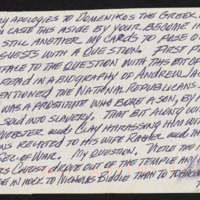 MY APOLOGIES TO DOMENIKOS THE GREEK
CASTE THIS ASIDE BY YOUR
STILL ANOTHER MY CARDS TO
GUESTS WITH A QUESTION. FIRST
TALE TO THE QUESTION WITH THIS BIT OF
READ IN A BIOGRAPHY OF ANDREW JAC
MENTIONED THE NATIONAL REPUBLICANS
WAS A PROSTITUTE WHO BORE A SON, BY
SOLD INTO SLAVERY. THAT BIT ALONG WI
WEBSTER AND CLAY HARASSING HIM WIT
NS RELATED TO HIS WIFE RACHEL AND TH
SEC. OF WAR. MY QUESTION. WERE THE M
ES CHRIST DROVE OUT OF THE TEMPLE AN
IN HOCK TO NICHOLAS BIDDLE THAN TO